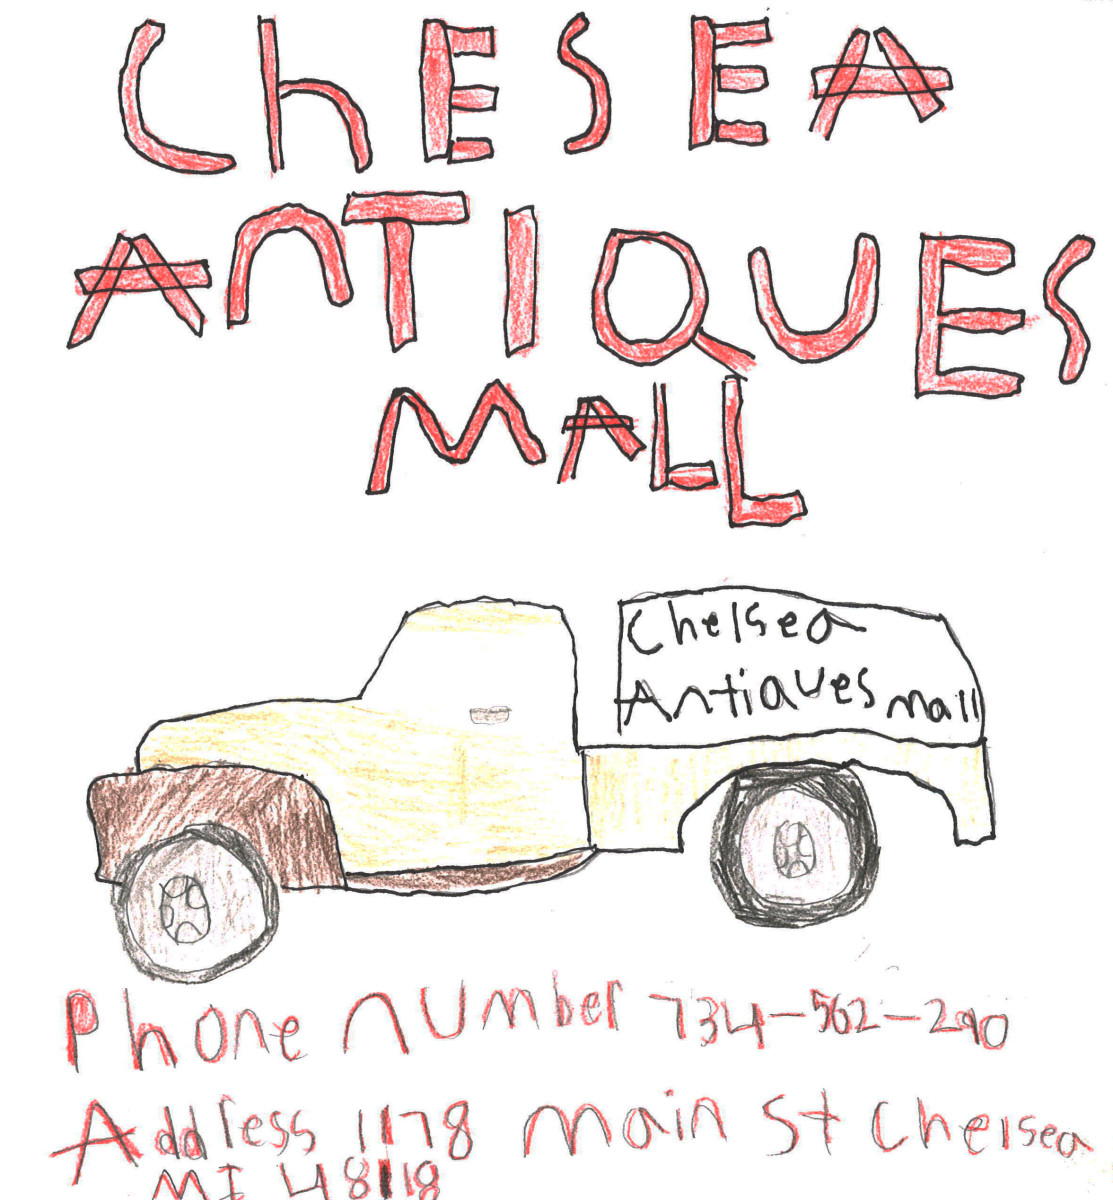 ChESEA
AnTIQUES
MALL
Chelsea
Antiques mall
Phone number 734-562-290
Address 1178 main St Chelsea
MI 48118